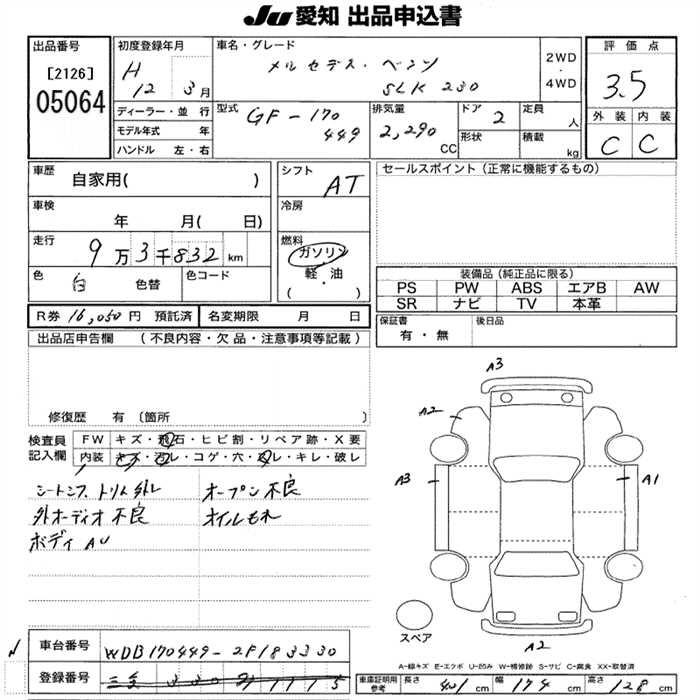 JU 愛知 出品申込書
出品番号
[2126]
05064
初度登録年月
H 12 3月
車名・グレード
メルセデス・ベンツ
SLK 230
2WD
・
4WD
評価点
3.5
外装 内装
C C
ディーラー・並 行
モデル年式 年
ハンドル 左・右
型式
GF-170
449
排気量
2,290 CC
ドア 2
定員 人
形状
積載 kg
車歴 自家用( )
車検 年 月( 日)
走行 9万3千832 km
色 白 色替
色コード
シフト AT
冷房
燃料
ガソリン
・
軽油
( )
セールスポイント(正常に機能するもの)
装備品(純正品に限る)
PS PW ABS エアB AW
SR ナビ TV 本革
R券 16,050円 預託済
名変期限 月 日
保証書 有・無
後日品
出品店申告欄 (不良内容・欠品・注意事項等記載)
修復歴 有 〔箇所 〕
検査員記入欄
FW キズ・飛石・ヒビ割・リペア跡・X要
内装 キズ・汚レ・コゲ・穴・スレ・キレ・破レ
トリム外レ オープン不良
外オーディオ不良 オイルもれ
ボディAU
A3
A2
A3
A1
A2
スペア
A-線キズ E-エクボ U-凹み W-補修跡 S-サビ C-腐食 XX-取替済
車台番号 WDB170449-2F183330
登録番号
車庫証明用参考
長さ 401 cm
幅 174 cm
高さ 128 cm